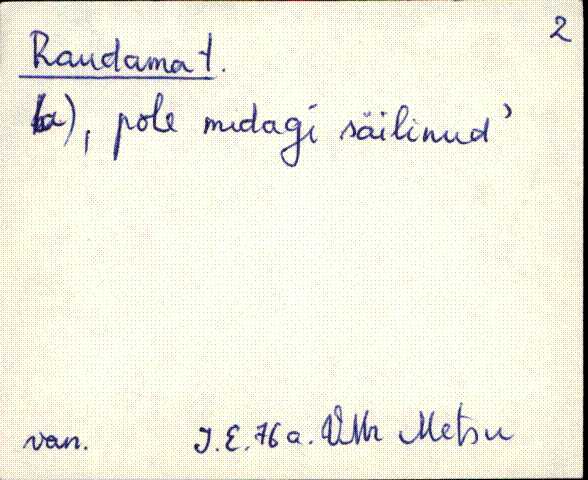 2
Raudama t.
a) , pole midagi säilinud'
van. J. E. 76 a. Metsu